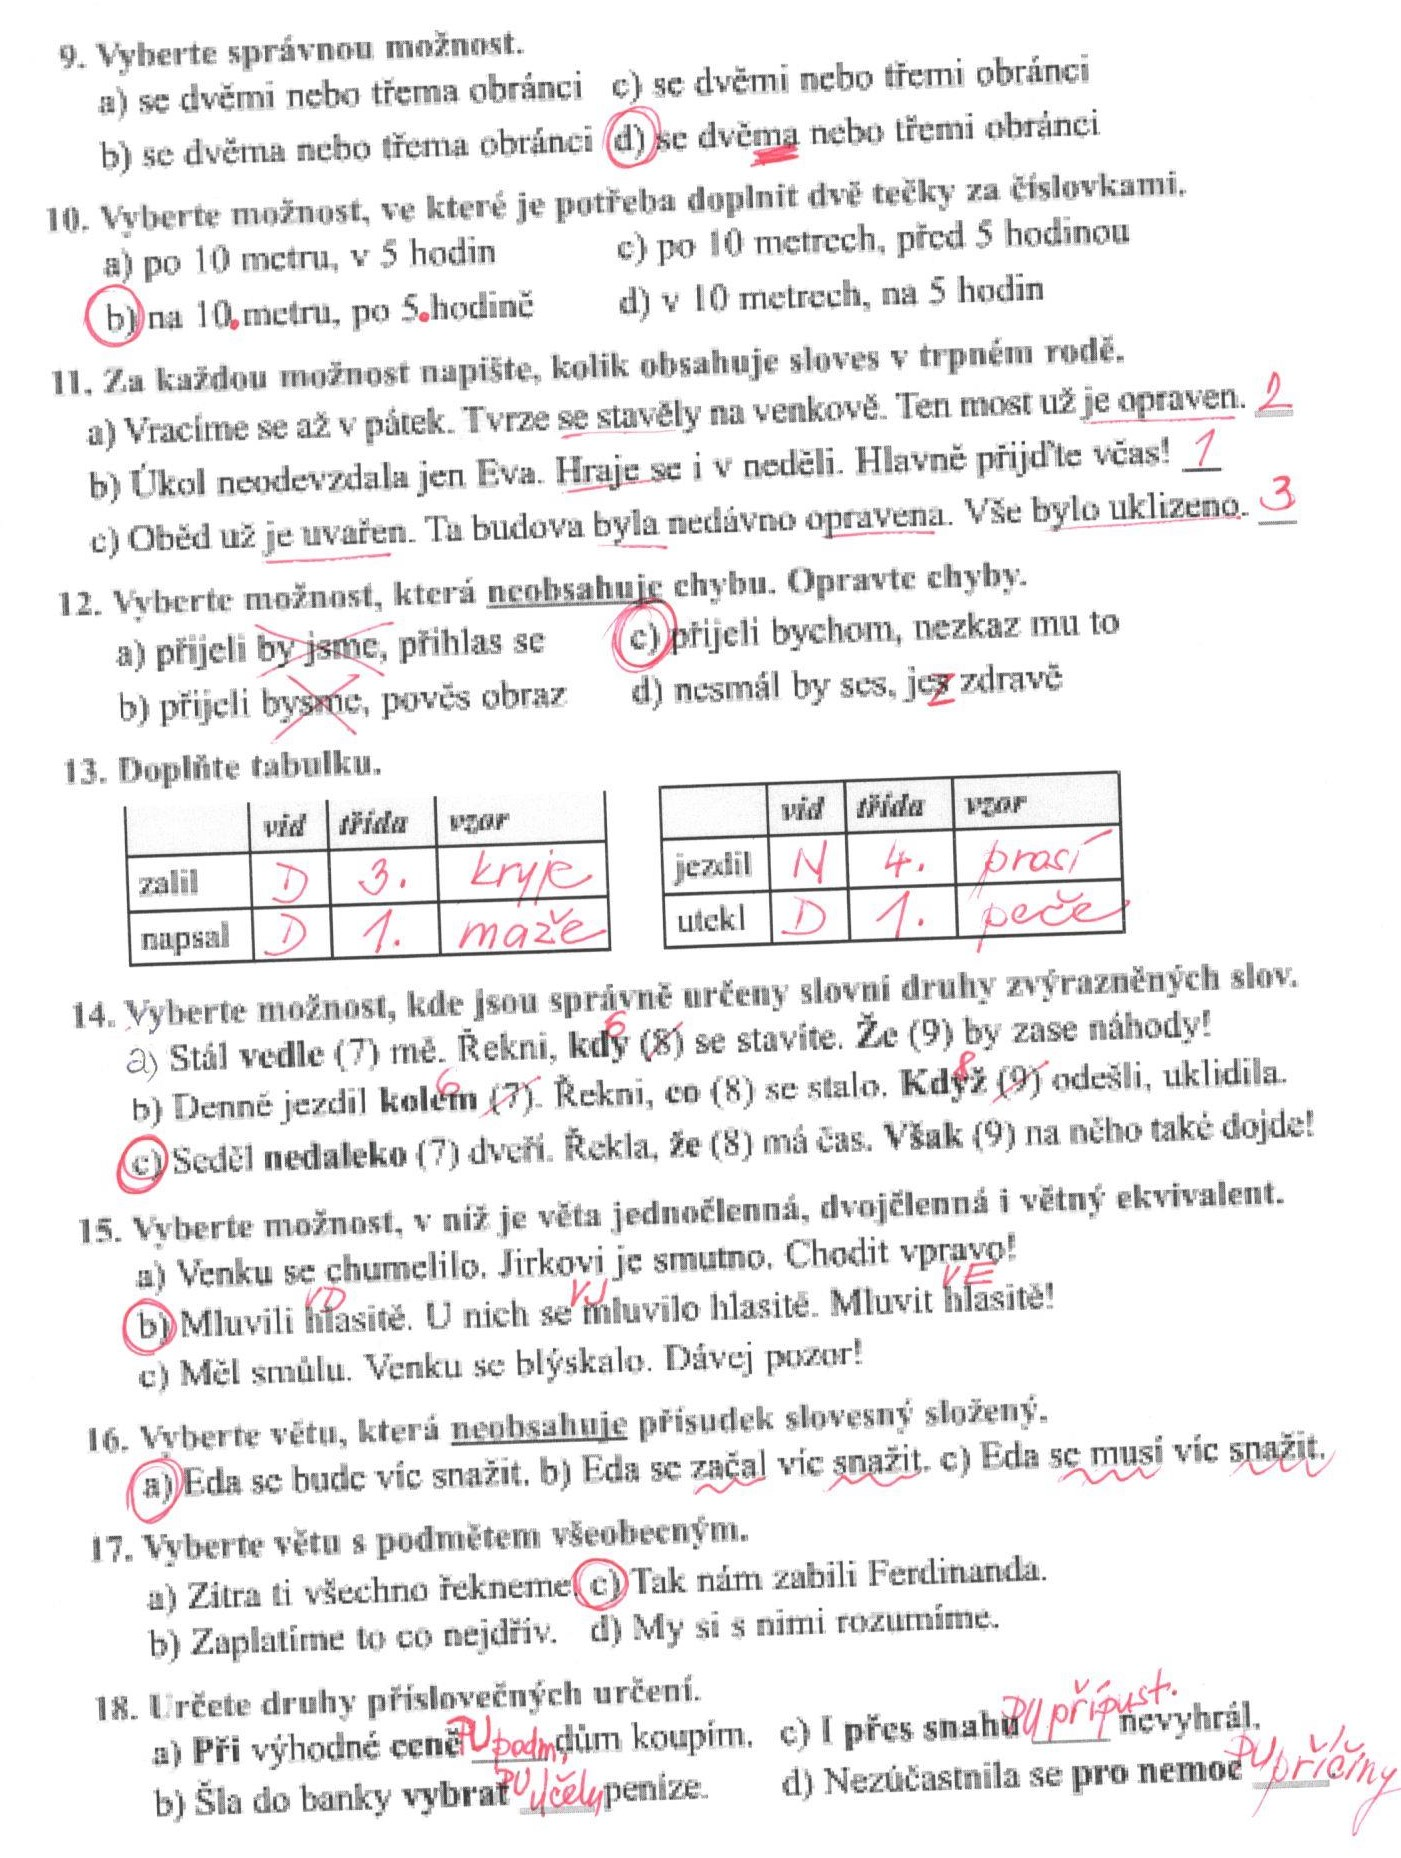 9. Vyberte správnou možnost.
a) se dvěmi nebo třema obránci c) se dvěmi nebo třemi obránci
b) se dvěma nebo třema obránci d) se dvěma nebo třemi obránci
10. Vyberte možnost, ve které je potřeba doplnit dvě tečky za číslovkami.
a) po 10 metru, v 5 hodin c) po 10 metrech, před 5 hodinou
b) na 10. metru, po 5. hodině d) v 10 metrech, na 5 hodin
11. Za každou možnost napište, kolik obsahuje sloves v trpném rodě.
a) Vracíme se až v pátek. Tvrze se stavěly na venkově. Ten most už je opraven. 2
b) Úkol neodevzdala jen Eva. Hraje se i v neděli. Hlavně přijďte včas! 1
c) Oběd už je uvařen. Ta budova byla nedávno opravena. Vše bylo uklizeno. 3
12. Vyberte možnost, která neobsahuje chybu. Opravte chyby.
a) přijeli by jsme, přihlas se c) přijeli bychom, nezkaz mu to
b) přijeli bysme, pověs obraz d) nesmál by ses, jez zdravě
13. Doplňte tabulku.
vid třída vzor vid třída vzor
zalil D 3. kryje jezdil N 4. prosí
napsal D 1. maže utekl D 1. peče
14. Vyberte možnost, kde jsou správně určeny slovní druhy zvýrazněných slov.
6
a) Stál vedle (7) mě. Řekni, kdy (8) se stavíte. Že (9) by zase náhody!
6 8
b) Denně jezdil kolem (7). Řekni, co (8) se stalo. Když (9) odešli, uklidila.
c) Seděl nedaleko (7) dveří. Řekla, že (8) má čas. Však (9) na něho také dojde!
15. Vyberte možnost, v níž je věta jednočlenná, dvojčlenná i větný ekvivalent.
a) Venku se chumelilo. Jirkovi je smutno. Chodit vpravo!
VD VJ VE
b) Mluvili hlasitě. U nich se mluvilo hlasitě. Mluvit hlasitě!
c) Měl smůlu. Venku se blýskalo. Dávej pozor!
16. Vyberte větu, která neobsahuje přísudek slovesný složený.
a) Eda se bude víc snažit. b) Eda se začal víc snažit. c) Eda se musí víc snažit.
17. Vyberte větu s podmětem všeobecným.
a) Zítra ti všechno řekneme. c) Tak nám zabili Ferdinanda.
b) Zaplatíme to co nejdřív. d) My si s nimi rozumíme.
18. Určete druhy příslovečných určení.
a) Při výhodné ceně PU podm. dům koupím. c) I přes snahu PU přípust. nevyhrál.
b) Šla do banky vybrat PU účelu peníze. d) Nezúčastnila se pro nemoc PU příčiny